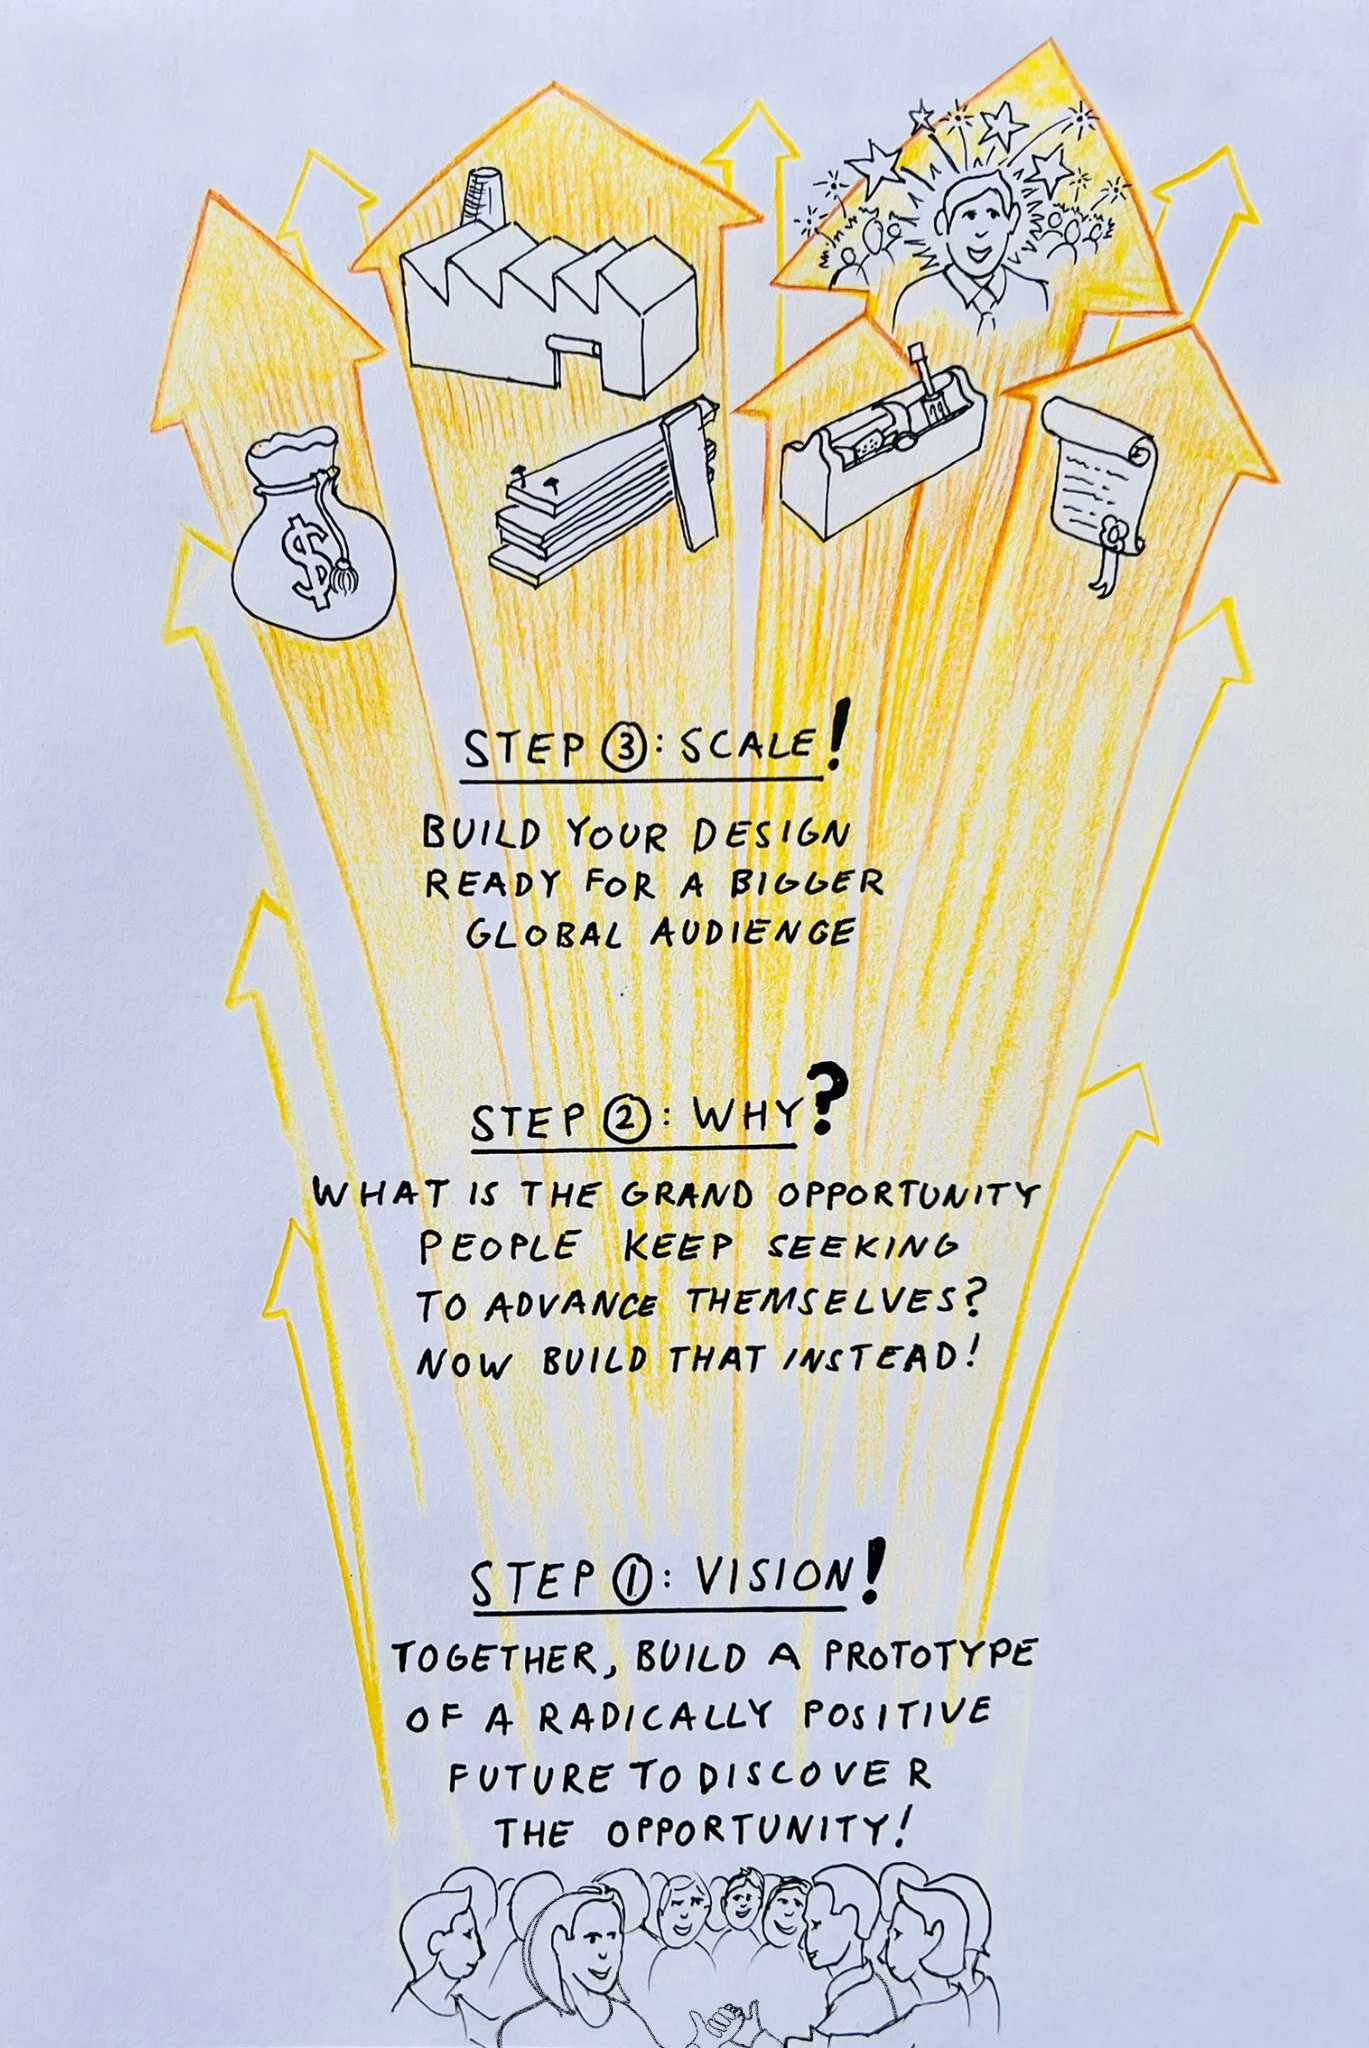 $
STEP 3: SCALE!
BUILD YOUR DESIGN
READY FOR A BIGGER
GLOBAL AUDIENCE
STEP 2: WHY?
WHAT IS THE GRAND OPPORTUNITY
PEOPLE KEEP SEEKING
TO ADVANCE THEMSELVES?
NOW BUILD THAT INSTEAD!
STEP 1: VISION!
TOGETHER, BUILD A PROTOTYPE
OF A RADICALLY POSITIVE
FUTURE TO DISCOVER
THE OPPORTUNITY!